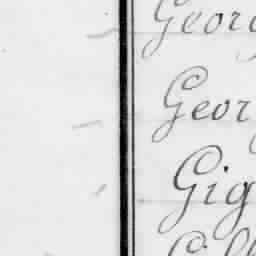 Georg
Geor
Gig